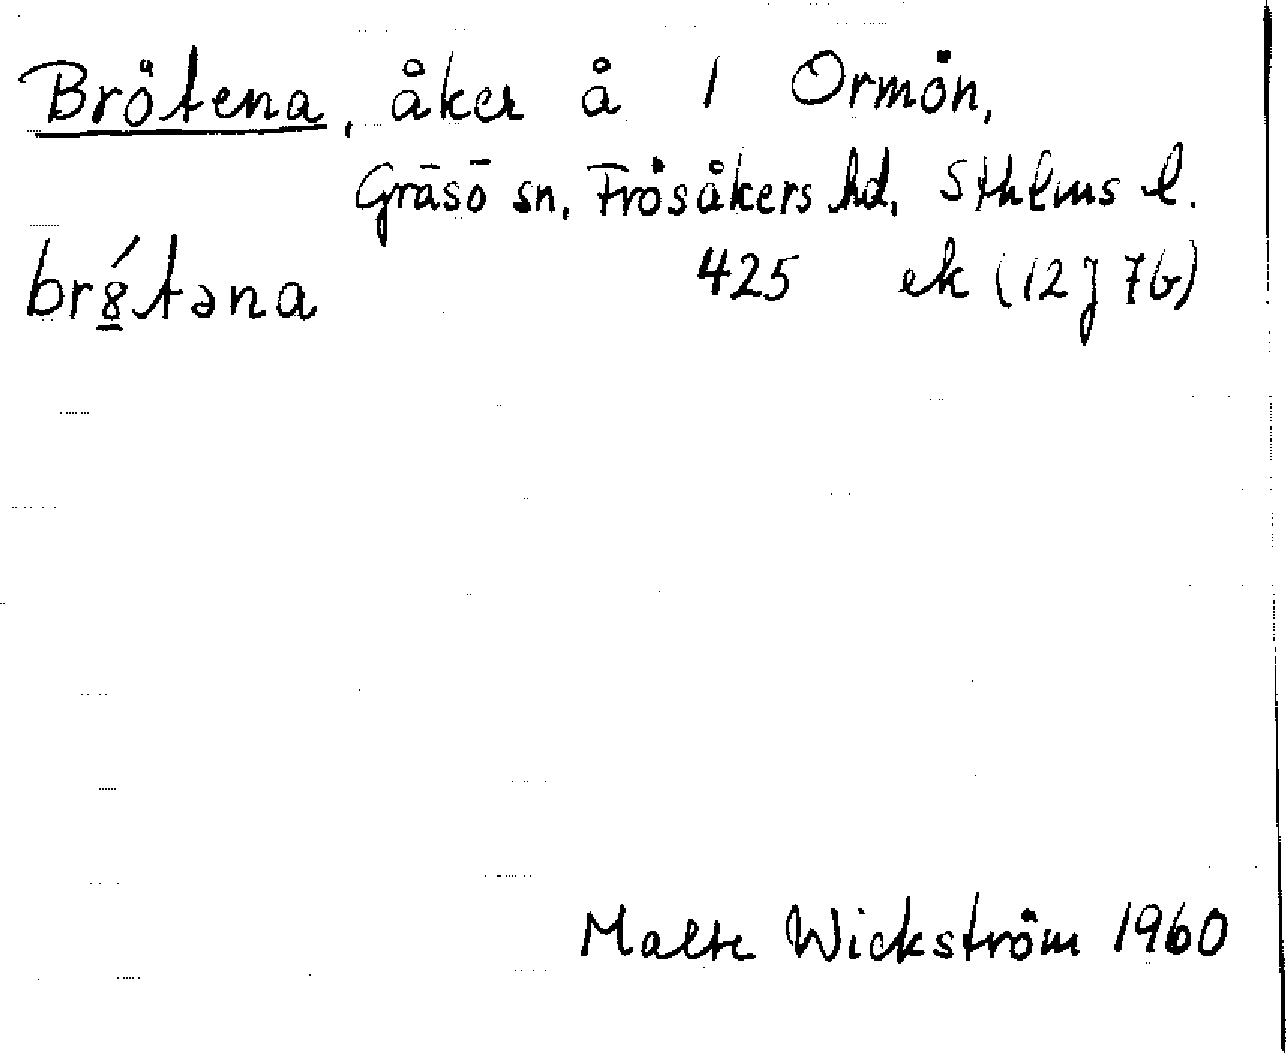 Brötena, åker å 1 Ormön,
Gräsö sn, Frösåkers hd, Sthlms l.
br8́təna 425 ek (12J 7b)
Malte Wickström 1960